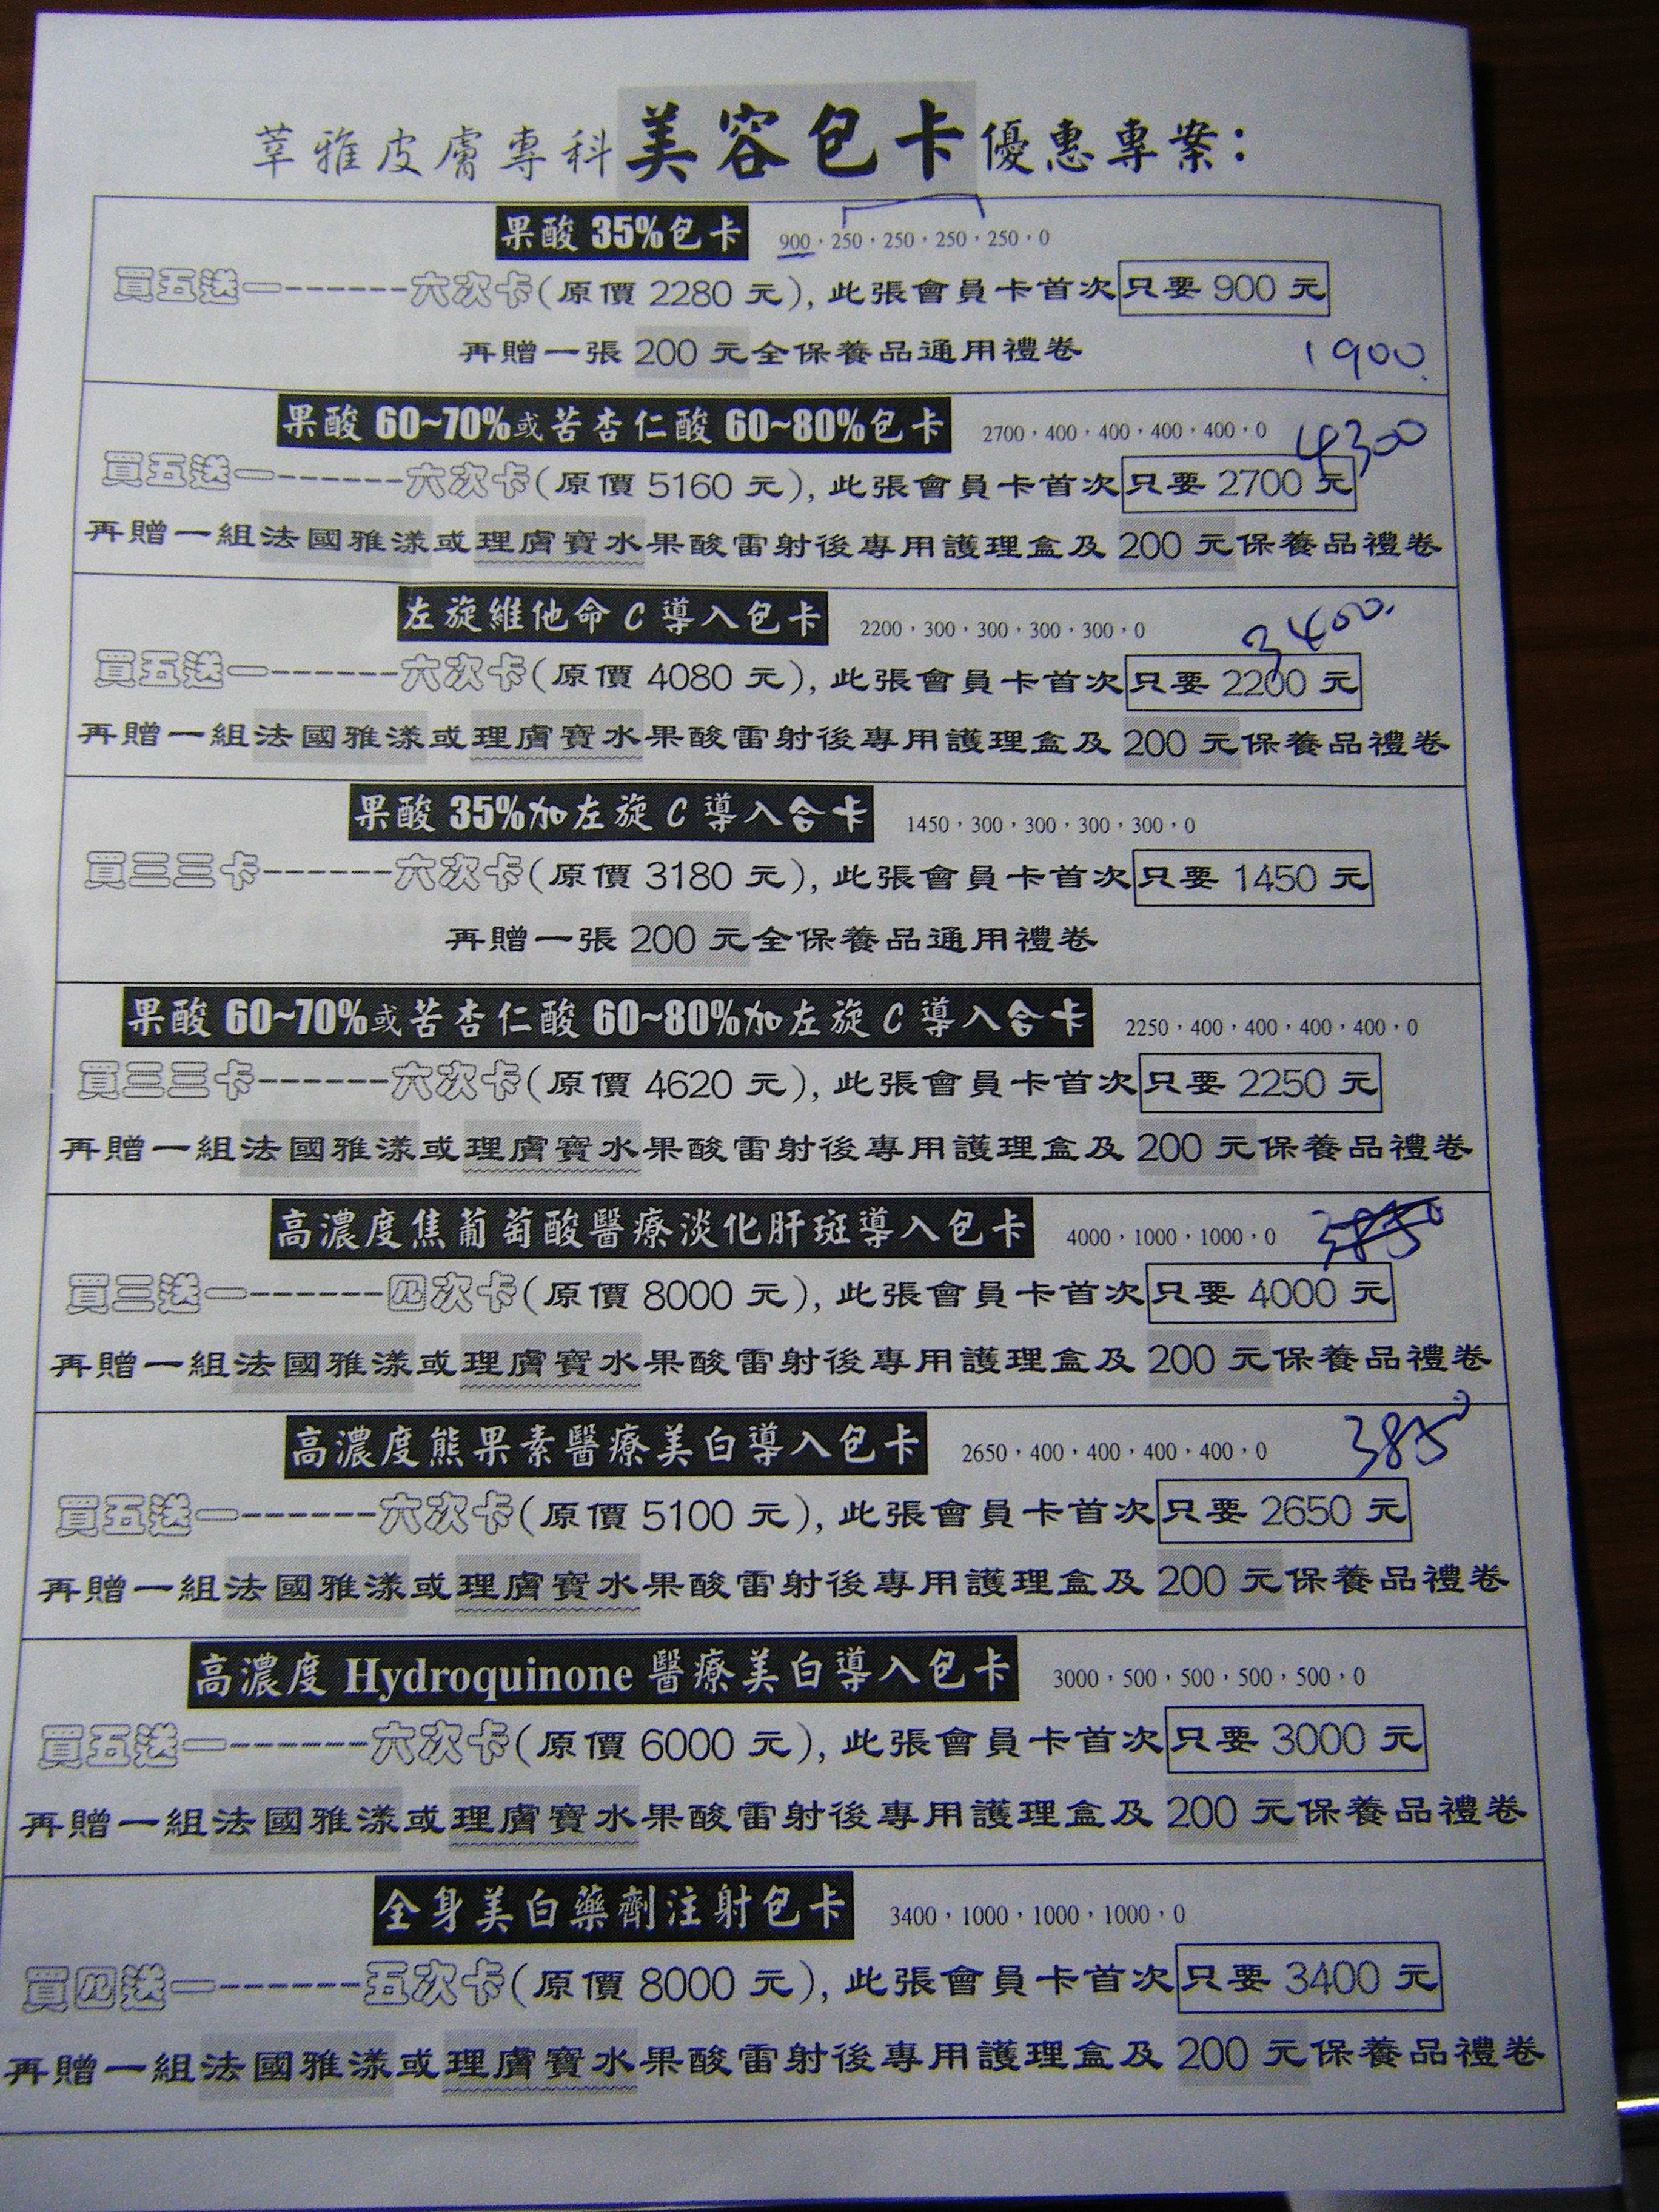 莘雅皮膚專科美容包卡優惠專案：
果酸 35%包卡 900，250，250，250，250，0
買五送一------六次卡(原價 2280 元)，此張會員卡首次只要 900 元
再贈一張 200 元全保養品通用禮卷 1900.
果酸 60~70%或苦杏仁酸 60~80%包卡 2700，400，400，400，400，0 4300
買五送一------六次卡(原價 5160 元)，此張會員卡首次只要 2700 元
再贈一組法國雅漾或理膚寶水果酸雷射後專用護理盒及 200 元保養品禮卷
左旋維他命 C 導入包卡 2200，300，300，300，300，0 3400.
買五送一------六次卡(原價 4080 元)，此張會員卡首次只要 2200 元
再贈一組法國雅漾或理膚寶水果酸雷射後專用護理盒及 200 元保養品禮卷
果酸 35%加左旋 C 導入合卡 1450，300，300，300，300，0
買三三卡------六次卡(原價 3180 元)，此張會員卡首次只要 1450 元
再贈一張 200 元全保養品通用禮卷
果酸 60~70%或苦杏仁酸 60~80%加左旋 C 導入合卡 2250，400，400，400，400，0
買三三卡------六次卡(原價 4620 元)，此張會員卡首次只要 2250 元
再贈一組法國雅漾或理膚寶水果酸雷射後專用護理盒及 200 元保養品禮卷
高濃度焦葡萄酸醫療淡化肝斑導入包卡 4000，1000，1000，0 3850
買三送一------四次卡(原價 8000 元)，此張會員卡首次只要 4000 元
再贈一組法國雅漾或理膚寶水果酸雷射後專用護理盒及 200 元保養品禮卷
高濃度熊果素醫療美白導入包卡 2650，400，400，400，400，0 3850
買五送一------六次卡(原價 5100 元)，此張會員卡首次只要 2650 元
再贈一組法國雅漾或理膚寶水果酸雷射後專用護理盒及 200 元保養品禮卷
高濃度 Hydroquinone 醫療美白導入包卡 3000，500，500，500，500，0
買五送一------六次卡(原價 6000 元)，此張會員卡首次只要 3000 元
再贈一組法國雅漾或理膚寶水果酸雷射後專用護理盒及 200 元保養品禮卷
全身美白藥劑注射包卡 3400，1000，1000，1000，0
買四送一------五次卡(原價 8000 元)，此張會員卡首次只要 3400 元
再贈一組法國雅漾或理膚寶水果酸雷射後專用護理盒及 200 元保養品禮卷